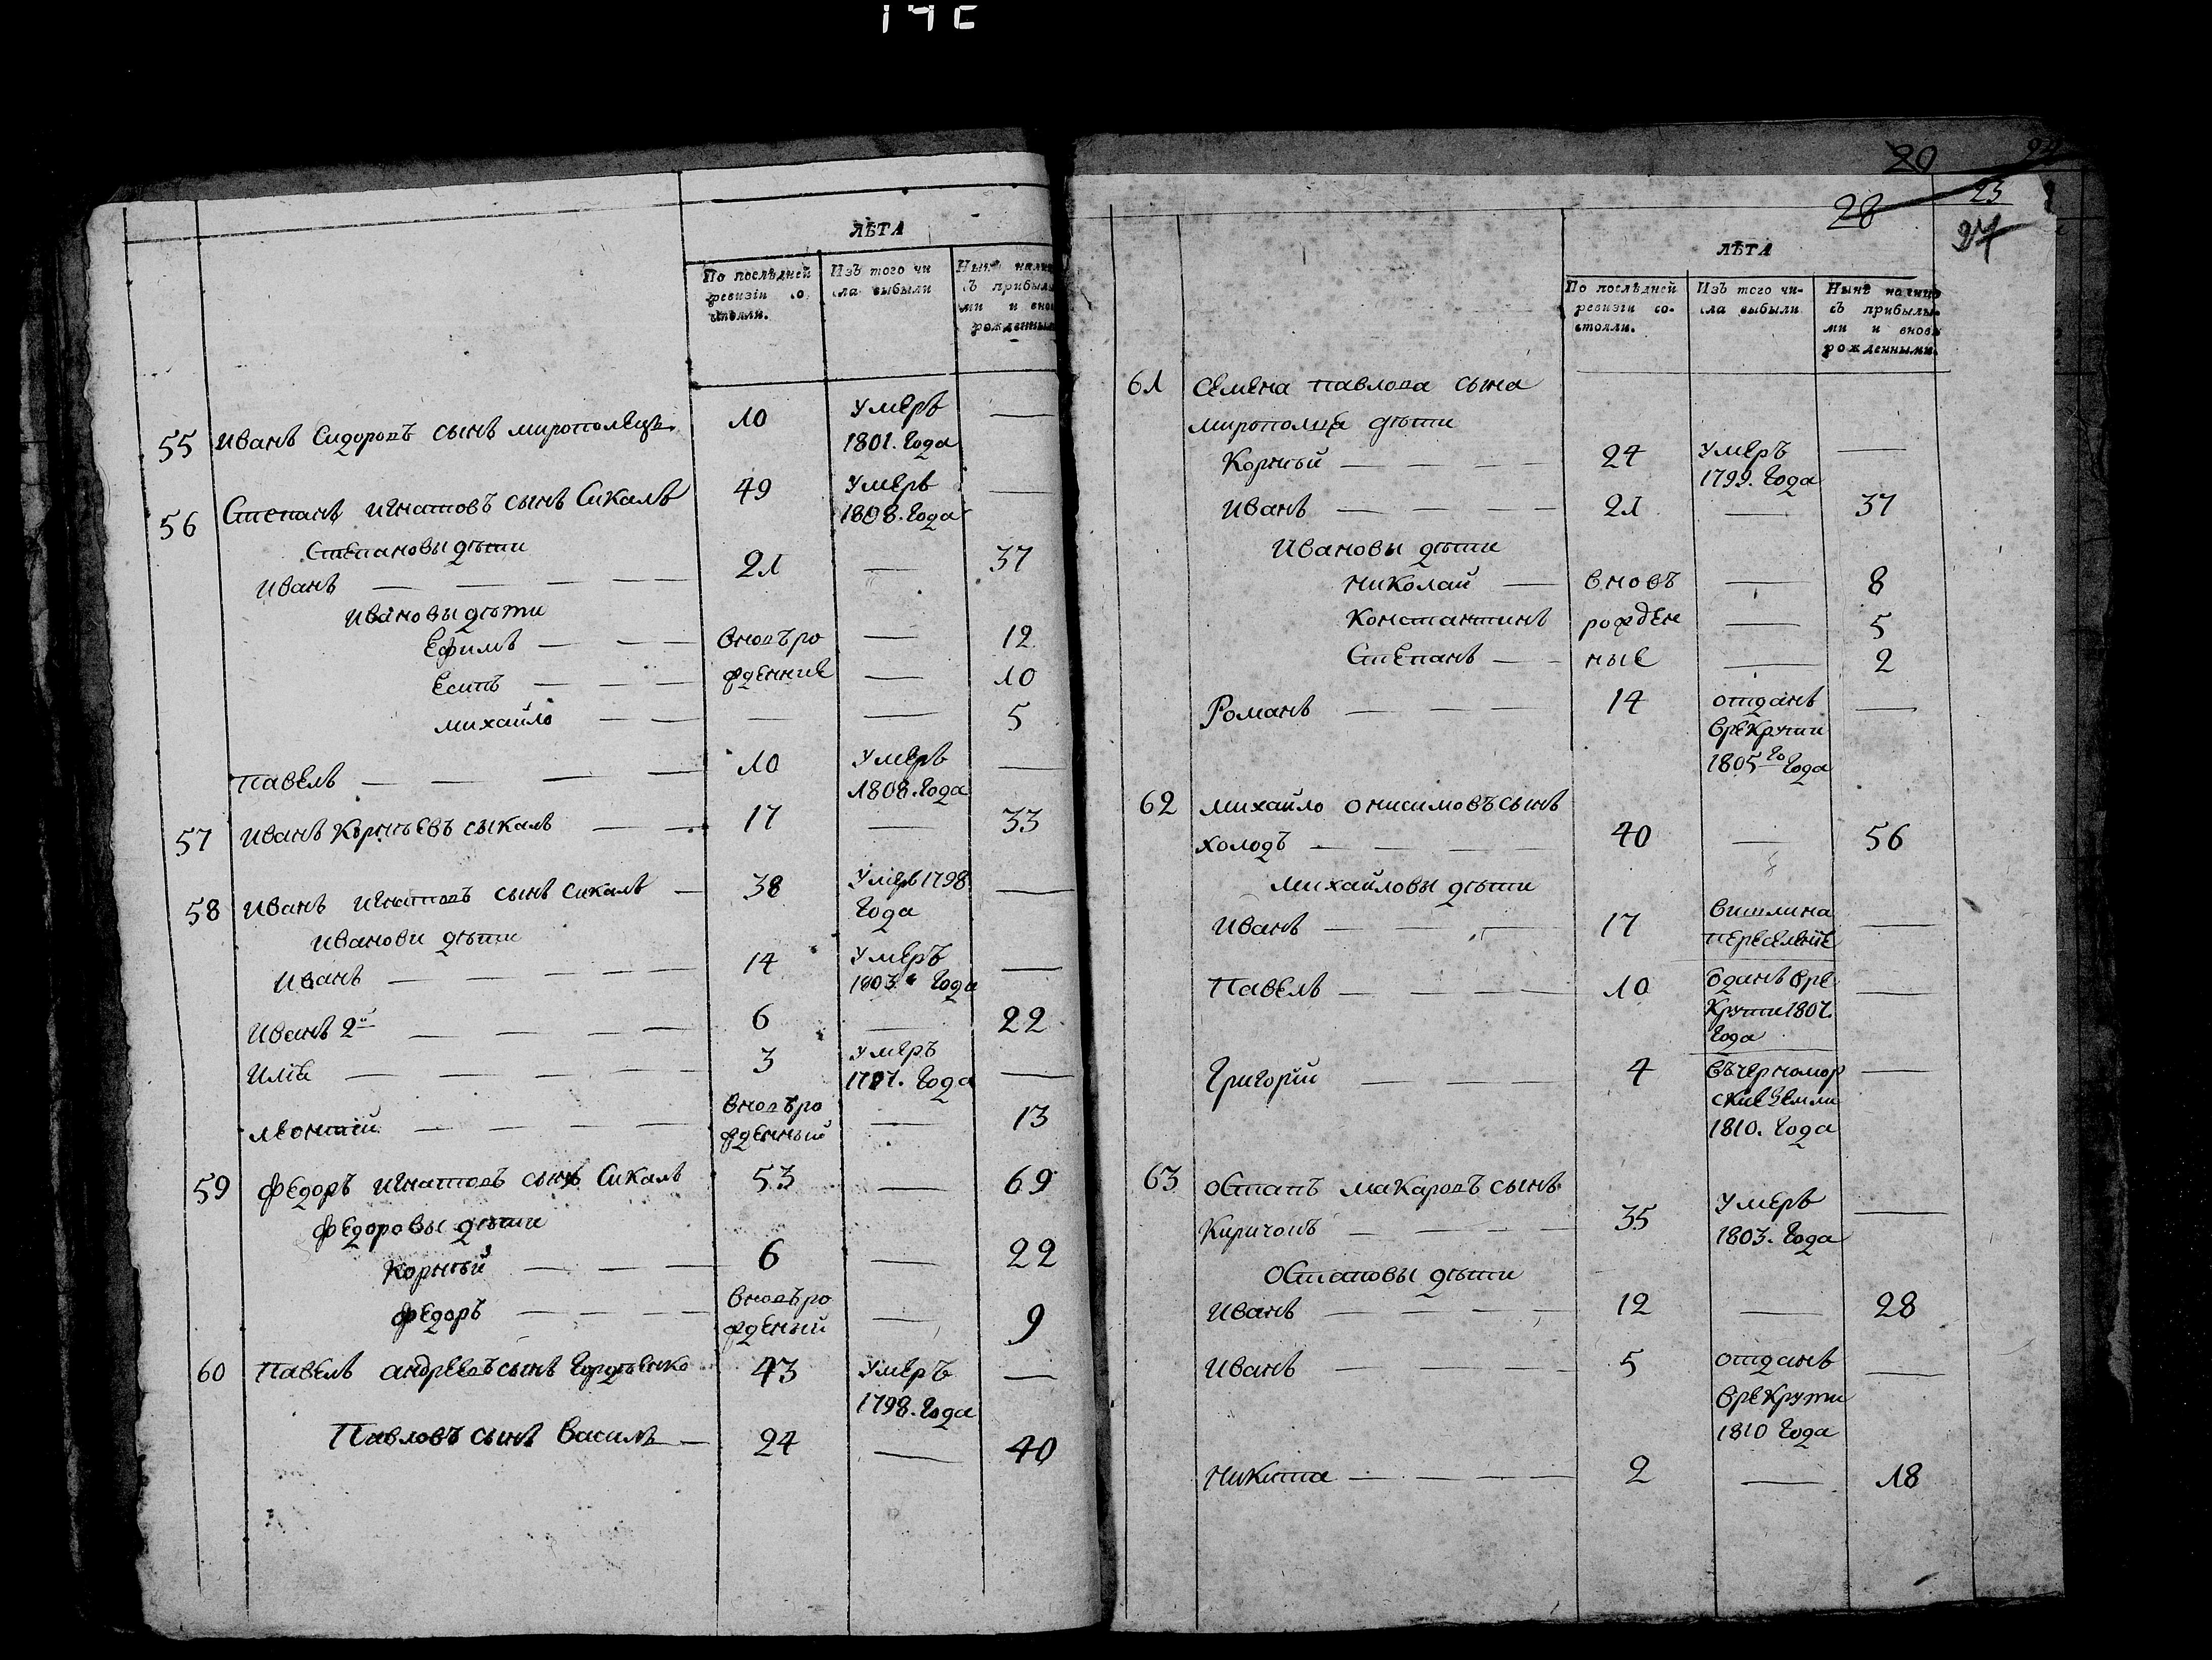 ЛѢТА
По послѣдней Изъ того чи Нынѣ налиц
ревизіи со сла выбыли съ прибылы
стояли. ми и внов
рожденными
55 Иванъ Сидоровъ сынъ мирополецъ 10 Умеръ —
1801. Года
56 Степанъ игнатовъ сынъ Сикалъ 49 Умеръ —
1808. Года
Степановы дѣти
Иванъ — — — — 21 — 37
Ивановы дѣти
Ефимъ — — вновъ ро — 12
Есипъ — — — жденние — 10
михайло — — — — 5
павелъ — — — — 10 Умеръ —
1808. Года
57 Иванъ Корнѣевъ сыкалъ — — 17 — 33
58 Иванъ игнатовъ сынъ сикалъ — 38 Умеръ 1798 —
Года
Иванови дѣти
Иванъ — — — — 14 Умеръ —
1803 Года
Иванъ 2й — — — — 6 — 22
Илія — — — — 3 Умеръ —
Года
леонтій — — — — вновъ ро — 13
жденный
59 федоръ игнатовъ сынъ Сикалъ 53 — 69
федоровы дѣти
Корнѣй — — — — 6 — 22
федоръ — — — — вновъ ро — 9
жденый
60 павелъ андреевъ сынъ 43 Умеръ —
1798. Года
Павловъ сынъ Василь — 24 — 40
20
28 23
27
ЛѢТА
По послѣдней Изъ того чи- Нынѣ налицо
ревизіи со- сла выбыли съ прибылы-
стояли. ми и вновь
рожденными.
61 Семена павлова сына
мирополца дѣти
Корнѣй — — — — 24 Умеръ —
1799. Года
Иванъ — — — — 21 — 37
Ивановы дѣти
николай — вновъ — 8
Константинъ рожден — 5
Степанъ — — ные — 2
Романъ — — — 14 отданъ —
врекрути
1805го Года
62 михайло онисимовъ сынъ
холодъ — — — — 40 — 56
михайловы дѣти
Иванъ — — — 17 —
Павелъ — — — — 10 одань вре —
крути 1807.
Года
Григорій — — — 4 въ черномор —
ские земли
1810. Года
63 Остапъ макаровъ сынъ
Киричокъ — — — — 35 Умеръ —
1803. Года
Остаповы дѣти
Иванъ — — — — 12 — 28
Иванъ — — — 5 отданъ —
врекрути
1810 Года
никита — — — — 2 — 18